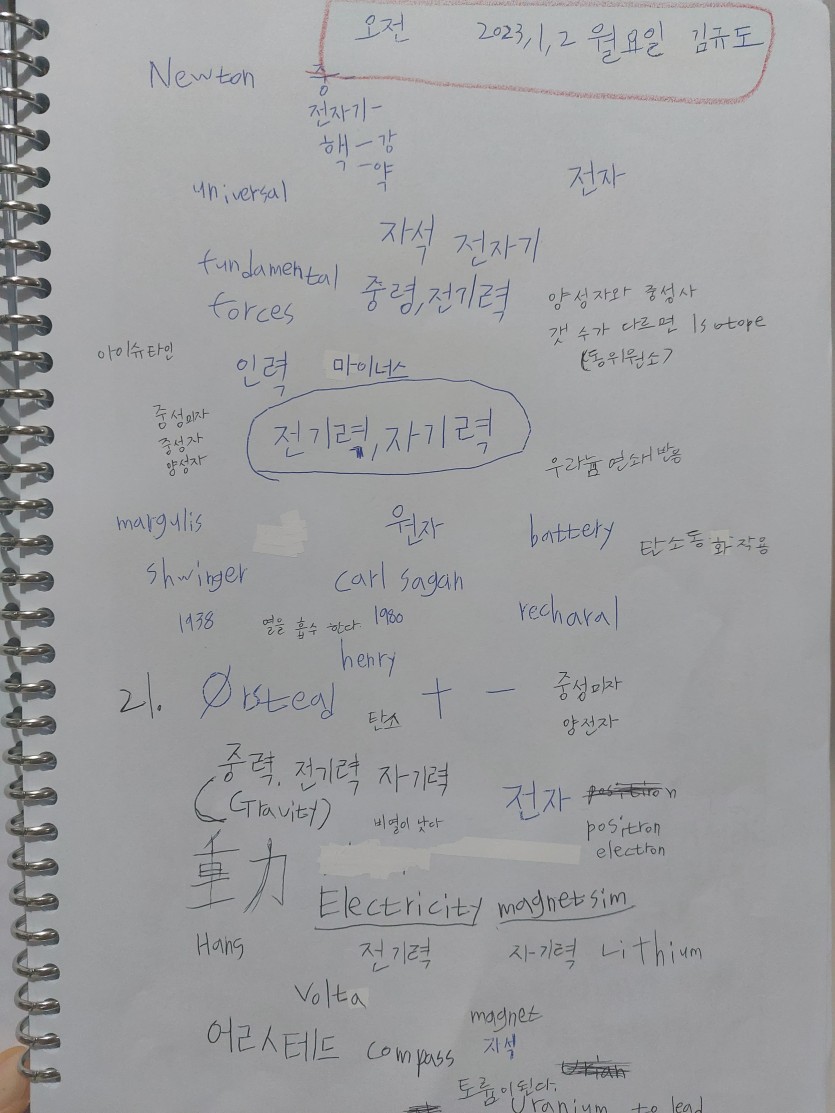 오전 2023,1,2 월요일 김규도
Newton 중
전자기-
핵-강
-약
universal 전자
자석 전자기
fundamental 중령,전기력
forces
양성자와 중성사
갯수가 다르면 Isotope
(동위원소)
아이슈타인
인력 마이너스
중성미자
중성자
양성자
전기력,자기력
우라늄 연쇄반응
margulis 원자 battery
탄소동화작용
shwinger carl sagan
1938 열을 흡수 한다. 1980 recharal
henry
21. Ørstead 탄소 + -
중성미자
양전자
중력, 전기력 자기력
(Gravity)
비열이 낮다
전자
positron
electron
重力
Electricity magnetsim
Hans 전기력 자기력 Lithium
Volta
magnet
어르스테드 compass 자석
토륨이된다.
Uranium to lead